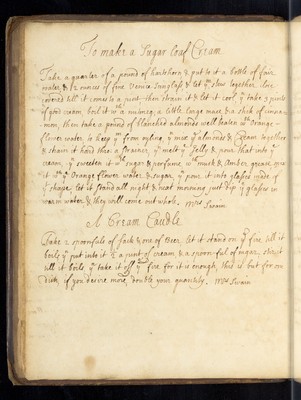 To make a Sugar loaf Cream.
Take a quarter of a pound of hartshorn & put to it a Bottle of fair
water, & 12 ounces of fine Venice Isinglass & let ym stew together, close
covered till it comes to a pint then strain it & let it cool, yn take 3 pints
of good cream, boil it wth a nutmeg, a little large mace & a stick of cinna=
mon, then take a pound of Blanched almonds well beaten wth Orange=
flower water to keep ym from oyling, yn mix ye almonds & Cream together
& strain it hard thro: a strainer, yn melt ye Jelly & pour that into ye
cream, yn sweeten it wth sugar & perfume wth musk & Amber greece, grind
it wth ye Orange flower water & sugar, yn pour it into glasses made of
ye shape, let it stand all night & next morning just dip ye glasses in
warm water & they will come out whole. Mrs Swain
A Cream Caudle
Take 2 spoonfuls of Sack & one of Beer, let it stand on ye fire till it
boils yn put into it a pint of cream & a spoonful of sugar, stir it
till it boils, yn take it off ye fire for it is enough, this is but for one
dish if you desire more, double your quantity. Mrs Swain